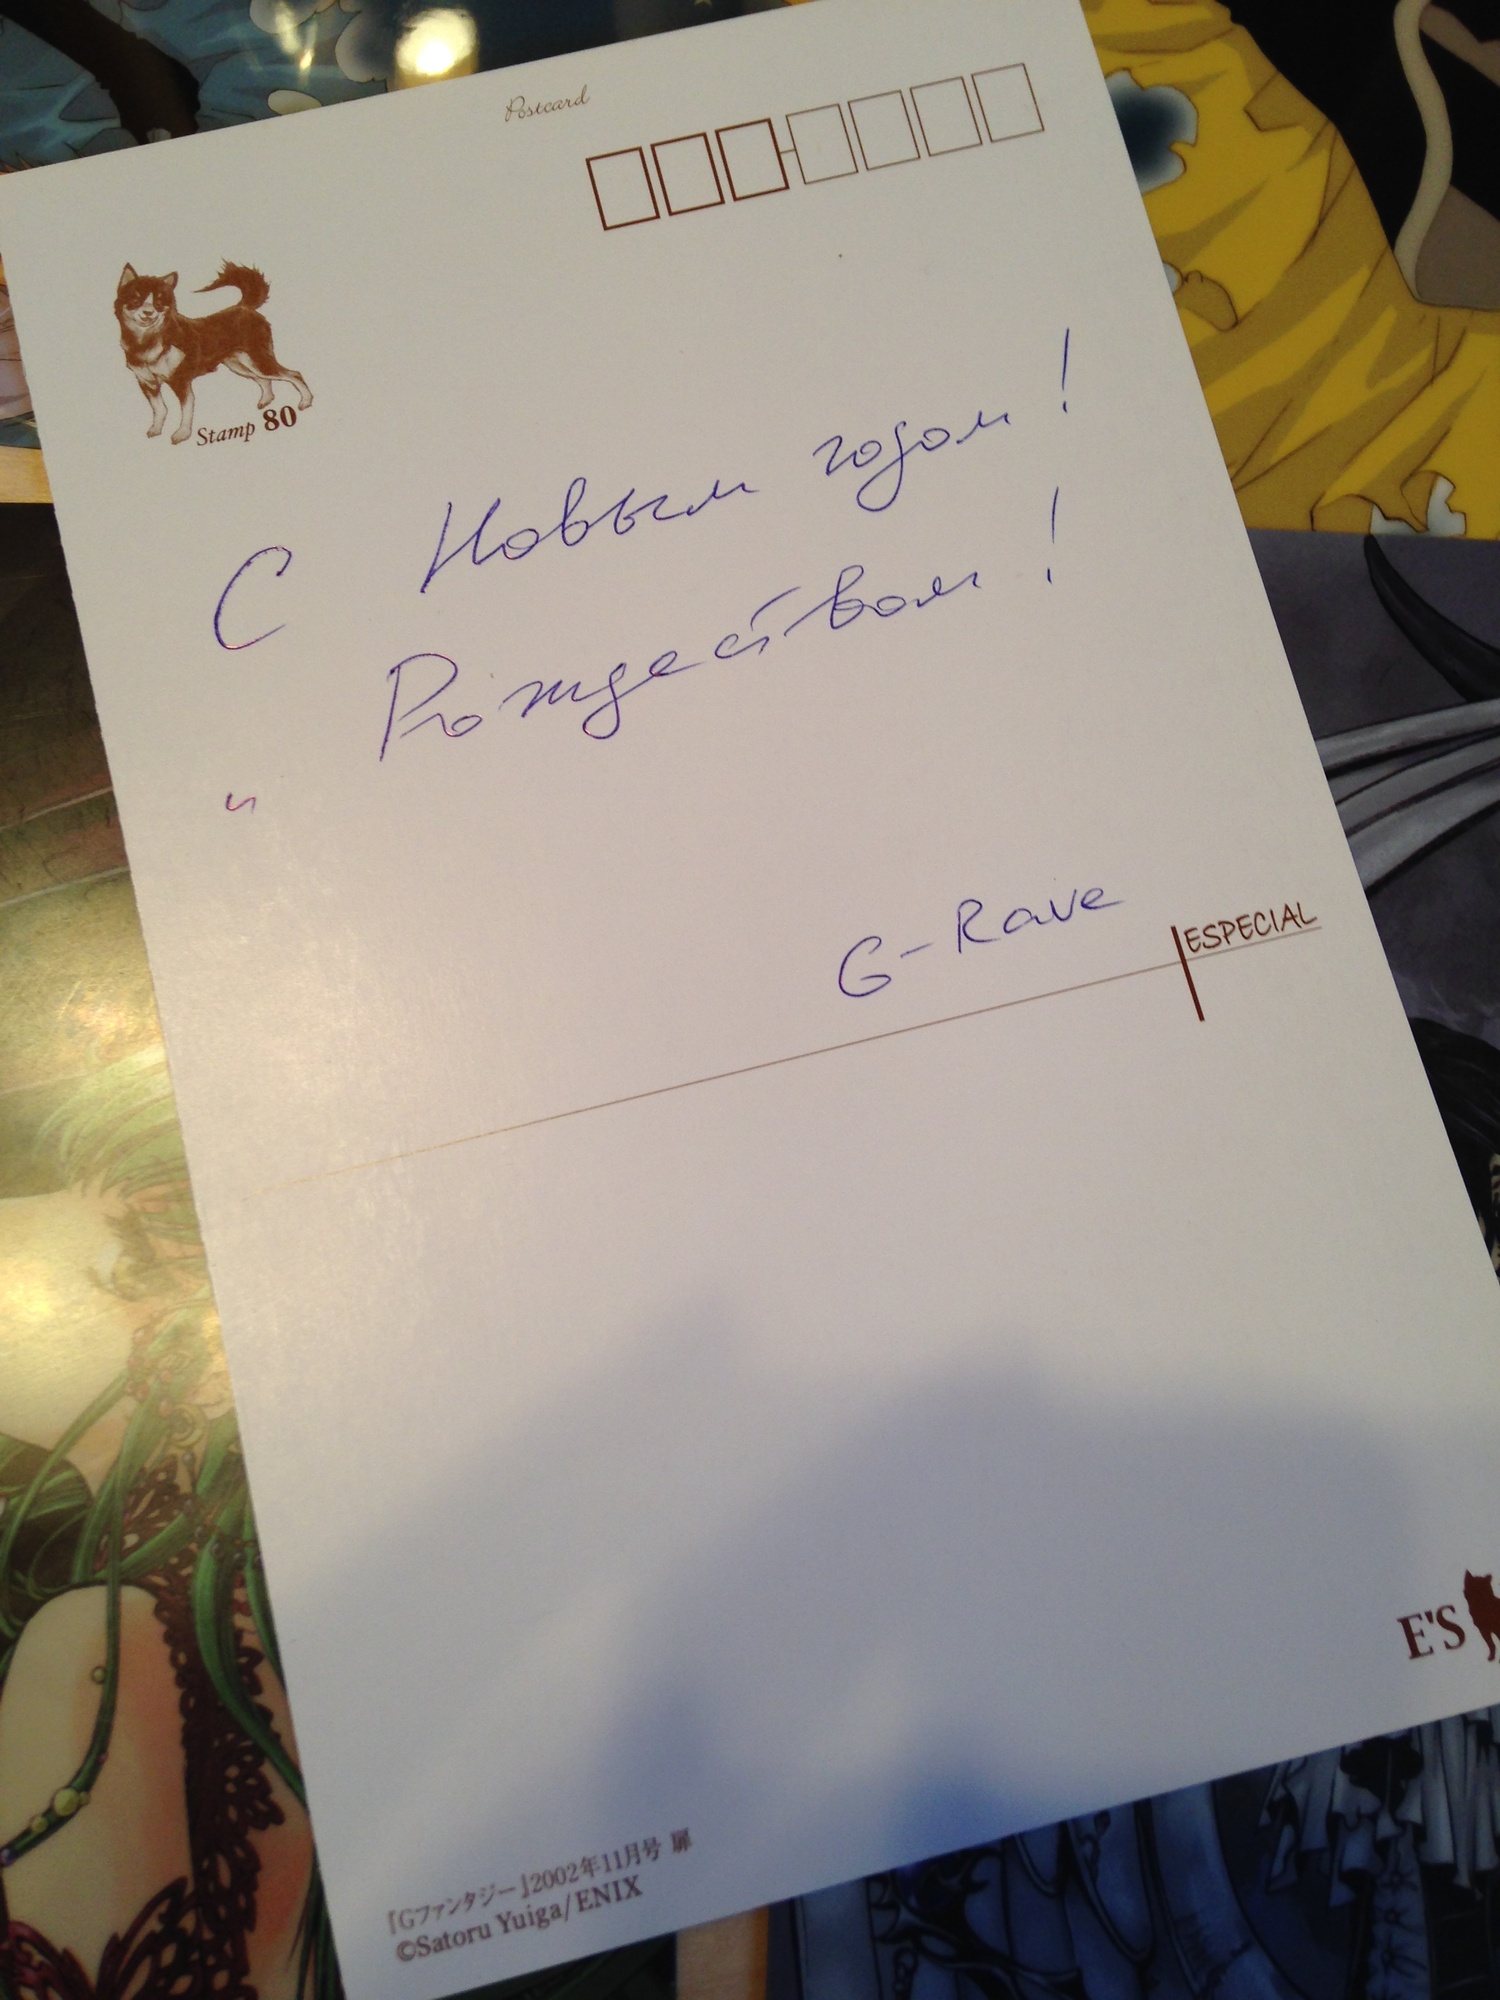 Postcard
Stamp 80
С Новым годом!
и Рождеством!
G-Rave
ESPECIAL
E'S
『Gファンタジー』2002年11月号 扉
©Satoru Yuiga/ENIX